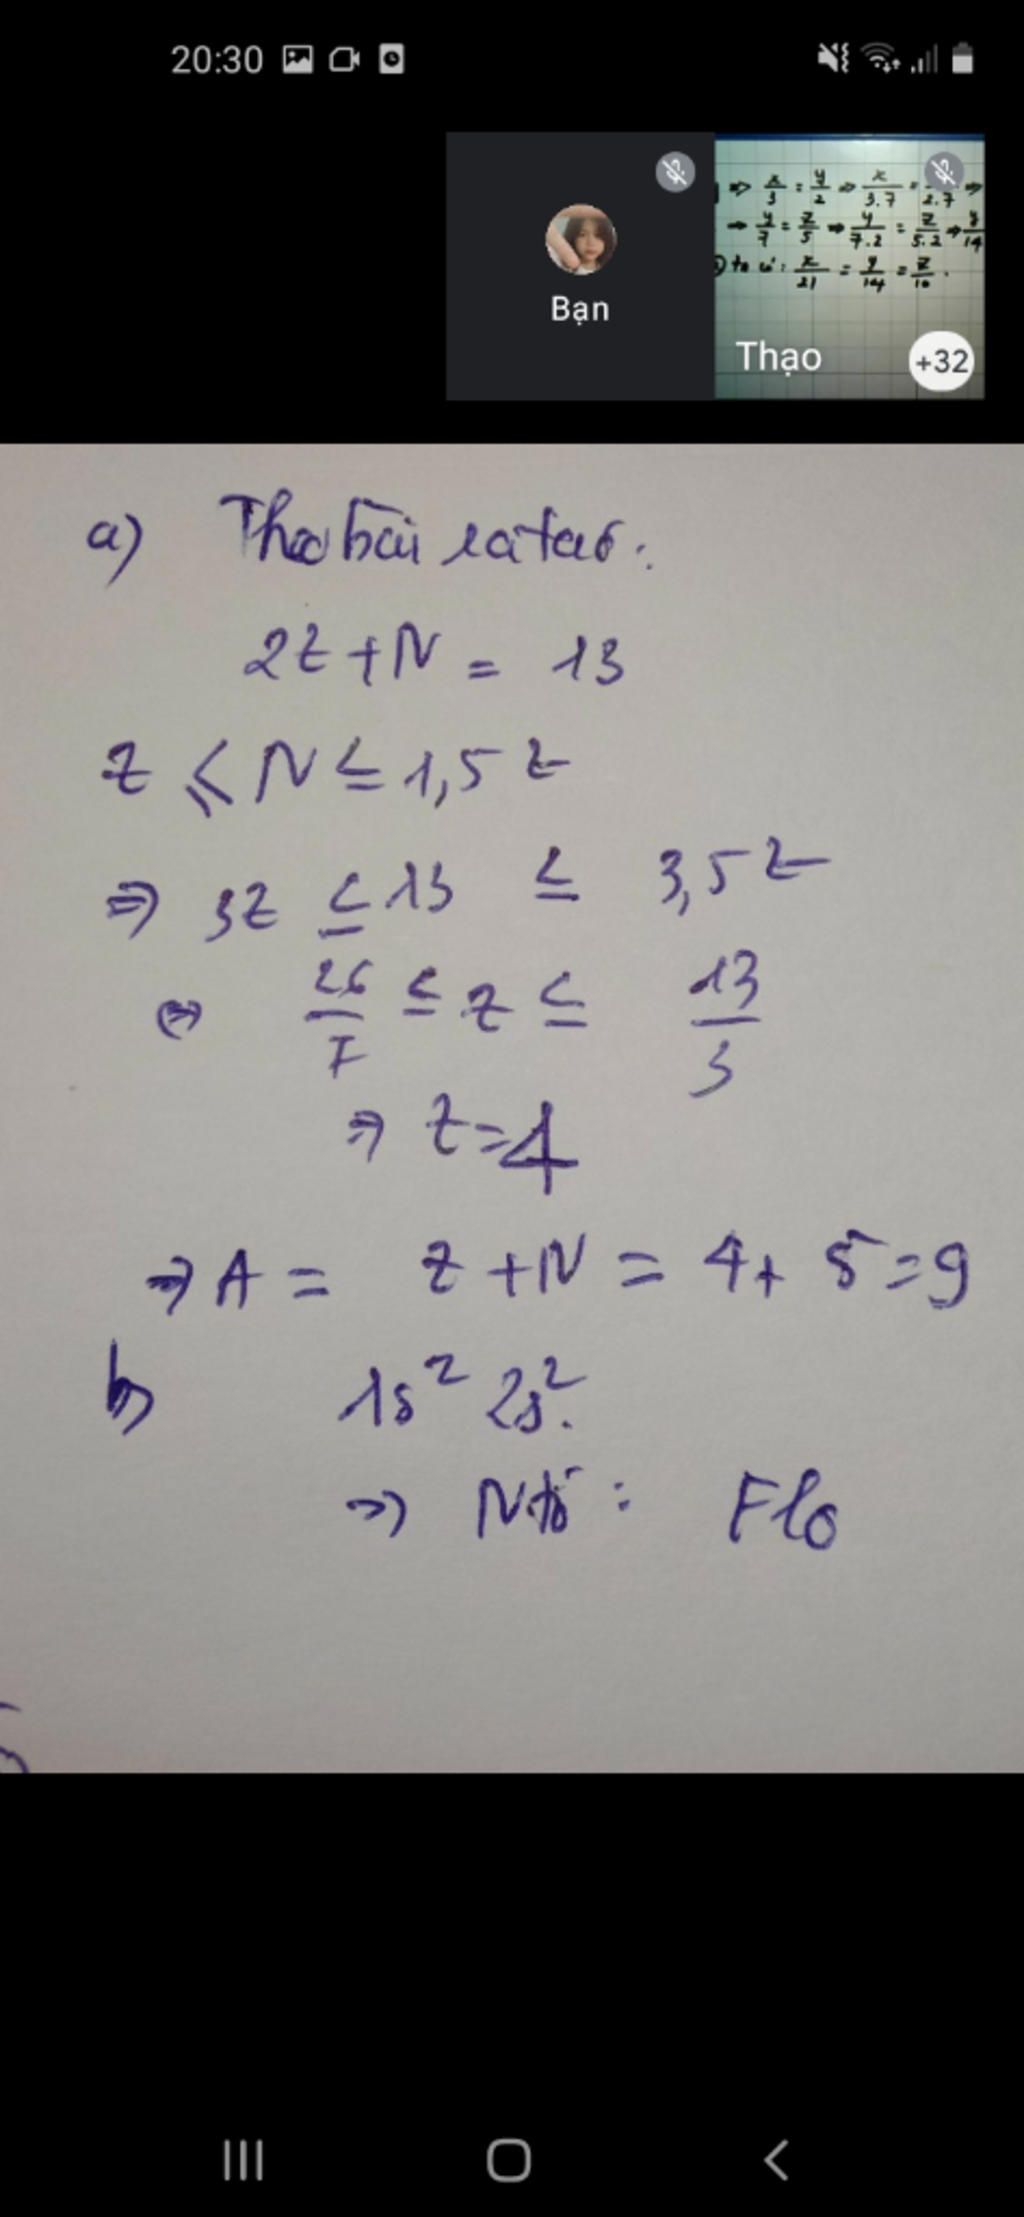 20:30
⇒ x/3 = y/2 ⇒ x/3.7 = 2.7 ⇒
⇒ y/7 = z/5 ⇒ y/7.2 = z/5.2 ⇒ y/14
x/21 = y/14 = z/10.
Bạn
Thạo
+32
a) bài ta có:
2Z + N = 13
Z ≤ N ≤ 1,5Z
⇒ 3Z ≤ 13 ≤ 3,5Z
⇔ 26/7 ≤ Z ≤ 13/3
⇒ Z = 4
⇒ A = Z + N = 4 + 5 = 9
b) 1s² 2s².
⇒ Ntố : Flo